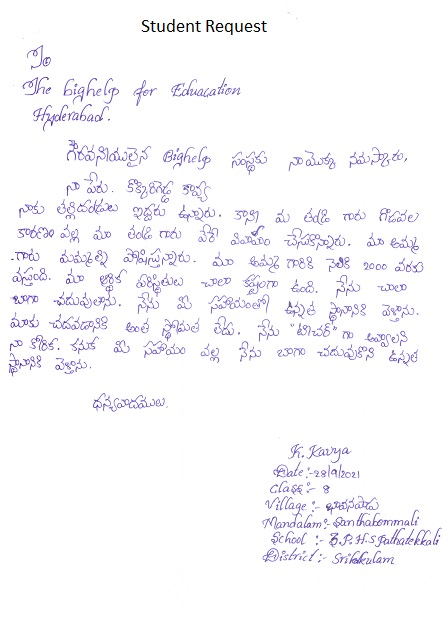 Student Request
To
The bighelp for Eduacation
Hyderabad.
గౌరవనీయులైన Bighelp సంస్థకు నాయొక్క నమస్కారు,
నా పేరు. కొక్కిరిగెడ్డ కావ్య
నాకు తల్లిదండులు ఇద్దరు ఉన్నారు. కాని మ తండి గారు గొడవల
కారణం వల్ల మా తండి గారు వేరే వివాహం చేసుకొన్నారు. మా అమ్మ
గారు మమ్మల్ని పోషిస్తున్నారు. మా అమ్మ గారికి నెలకి 2000 వరకు
వస్తుంది. మా ఆర్థిక పరిస్థితులు చాలా కష్టంగా ఉంది. నేను చాలా
బాగా చదువుతాను. నేను మీ సహయంతో ఉన్నత స్థానానికి వెళ్తాను.
మాకు చదవడానికి అంత స్థోమత లేదు. నేను "టిచర్" గా అవ్వాలని
నా కోరిక. కనుక మీ సహాయం వల్ల నేను బాగా చదువుకొని ఉన్నత
స్థానానికి వెళ్తాను.
ధన్యవాదములు.
K. Kavya
Date:-28/9/2021
Class:- 8
Village:- భావనపాడు
Mandalam:- Santhabommali
School :- Z.P.H.S Pathatekkali
District:- Srikakulam